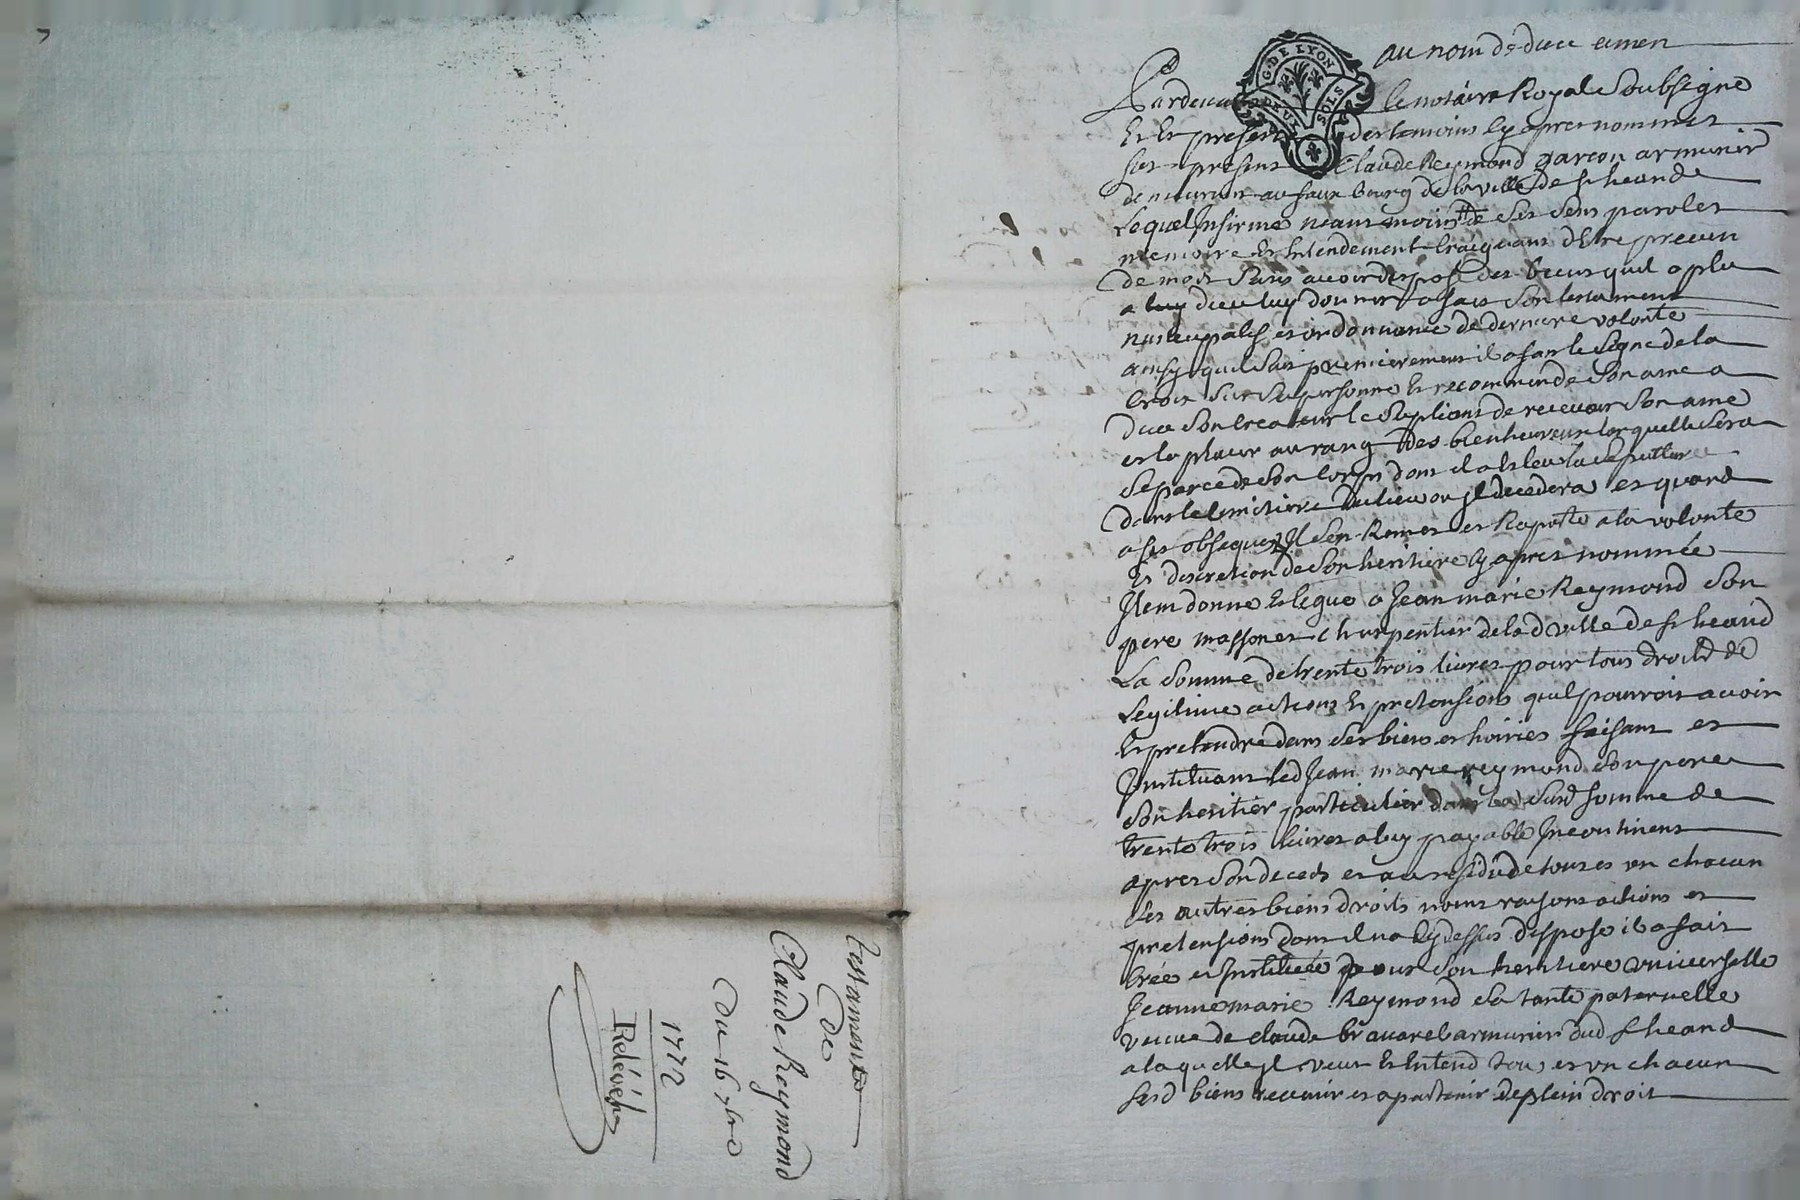 Testament
de
Claude Reymond
Du 16 7bre
1772
Relevé
G. DE LYON
DEUX SOLS
au nom de dieu amen
Pardevant le notaire Royal Soubsigne
Et En presence des temoins Cy apres nommes
fut present Claude Reymond garcon armurier
demeurant au faux bourg de la ville de St heand
Lequel Infirme neanmoins de ses sens paroles
memoire Et Entendement craignant dEtre prevenu
de mort sans avoir disposé des biens quil a plu
a luy dieu luy donner a fait son testament
nuncupatif et ordonnance de derniere volonté
ainsy quil suit premierement il a fait le signe de la
Croix sur sa personne Et recommande son ame a
dieu son Createur le Supliant de recevoir son ame
et la placer au rang des bienheureux lorquelle sera
separee de son corps dont il a Esleu la sepulture
dans le Cimetiere du lieu ou jl decedera et quand
a ses obseques Jl sen Remet et Raporte a la volonte
Et discretion de son heritiere Cy apres nommée
Jtem donne Et legue a Jean marie Reymond son
pere masson et charpentier de lad ville de St heand
La Somme de trente trois livres pour tous droits de
Legitime actions Et pretensions quil pourroit avoir
Et pretendre dans ses biens et hoiries faisant et
Jnstituant led Jean marie reymond son pere
son heritier particulier dans la Susd somme de
trente trois livres a luy payable Jncontinent
apres son deceds et au residu de tous et un chacun
ses autres biens droits noms raisons actions et
pretensions dont il na Cy dessus disposé il a fait
Créé et Jnstituée pour son heritiere universelle
Jeanne marie Reymond sa tante paternelle
veuve de claude bravarel armurier dud St heand
a laquelle jl veut Et Entend tous et un chacun
sesd biens revenir et apartenir de plein droit